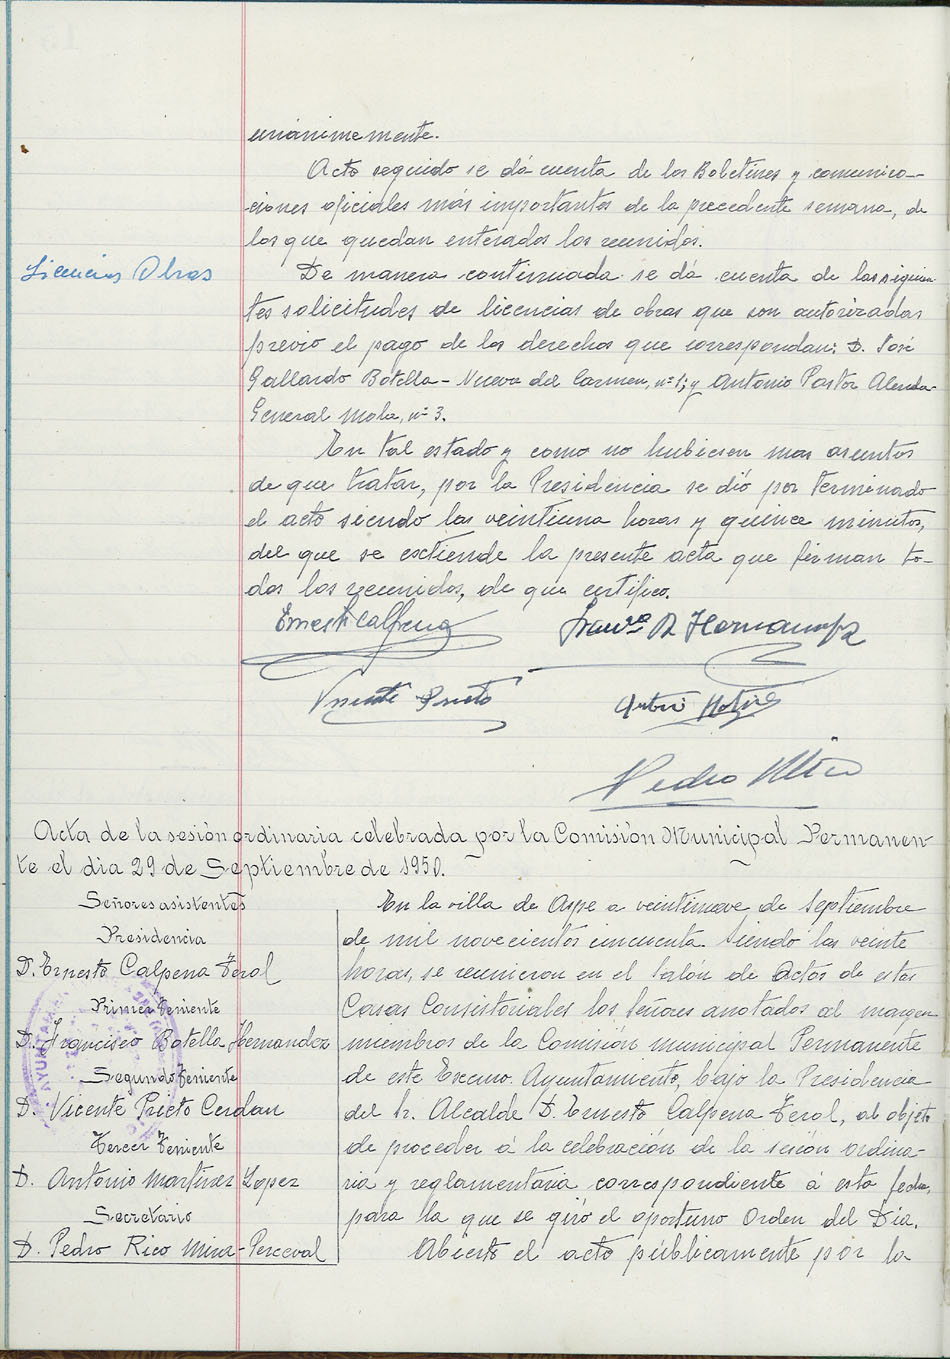 unánimemente.
Acto seguido se dá cuenta de los Boletines y comunica-
ciones oficiales más importantes de la precedente semana, de
los que quedan enterados los reunidos.
Licencias Obras
De manera continuada se dá cuenta de las siguien
tes solicitudes de licencias de obras que son autorizadas
previo el pago de los derechos que correspondan: D. José
Gallardo Botella - Nueva del Carmen, nº 1; y Antonio Pastor Alenda
General Mola, nº 3.
En tal estado y como no hubiesen mas asuntos
de que tratar, por la Presidencia se dió por terminado
el acto siendo las veintiuna horas y quince minutos,
del que se extiende la presente acta que firman to-
dos los reunidos, de que certifico.
Ernesto Calpena
Franco B Hernandez
Vicente Prieto
Pedro Rico
Acta de la sesión ordinaria celebrada por la Comisión Municipal Permanen-
te el dia 29 de Septiembre de 1950.
Señores asistentes
Presidencia
D. Ernesto Calpena Ferol
Primer Teniente
D. Francisco Botella Hernandez
Segundo Teniente
D. Vicente Prieto Cerdan
Tercer Teniente
D. Antonio Martinez Lopez
Secretario
D. Pedro Rico Mira-Perceval
AYUNTAM
En la villa de Aspe a veintinueve de Septiembre
de mil novecientos cincuenta. Siendo las veinte
horas, se reunieron en el Salón de Actos de estas
Casas Consistoriales los Señores anotados al margen
miembros de la Comisión Municipal Permanente
de este Excmo. Ayuntamiento, bajo la Presidencia
del Sr. Alcalde D. Ernesto Calpena Ferol, al objeto
de proceder á la celebración de la sesión ordina-
ria y reglamentaria correspondiente á esta fecha,
para la que se giró el oportuno Orden del Dia.
Abierto el acto públicamente por la